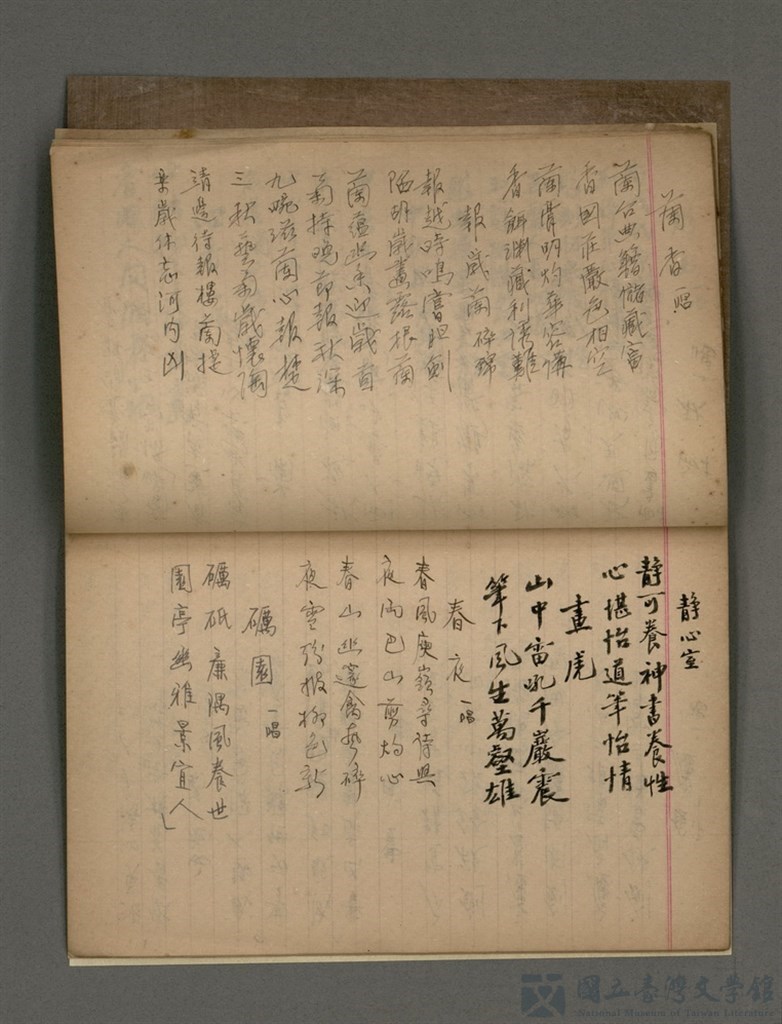 蘭香 一唱
蘭台典籍儲藏富
香國莊嚴色相空
蘭膏明灼華容講
香餌淵藏利誘難
報歲蘭 碎錦
報越時鳴嘗胆劍
陋胡歲畫露根蘭
蘭蘊幽香迎歲首
菊持晚節報秋深
九畹滋蘭心報楚
三秋藝菊歲懷陶
清邊待報樓蘭捷
樂歲休忘河內凶
靜心室
靜可養神書養性
心堪怡道筆怡情
畫虎
山中雷吼千巖震
筆下風生萬壑雄
春夜 一唱
春風庾嶺尋詩興
夜雨巴山剪燭心
春山幽邃禽聲碎
夜雪紛披柳色新
礪園 一唱
礪砥廉隅風養世
園亭幽雅景宜人
國立臺灣文學館
National Museum of Taiwan Literature